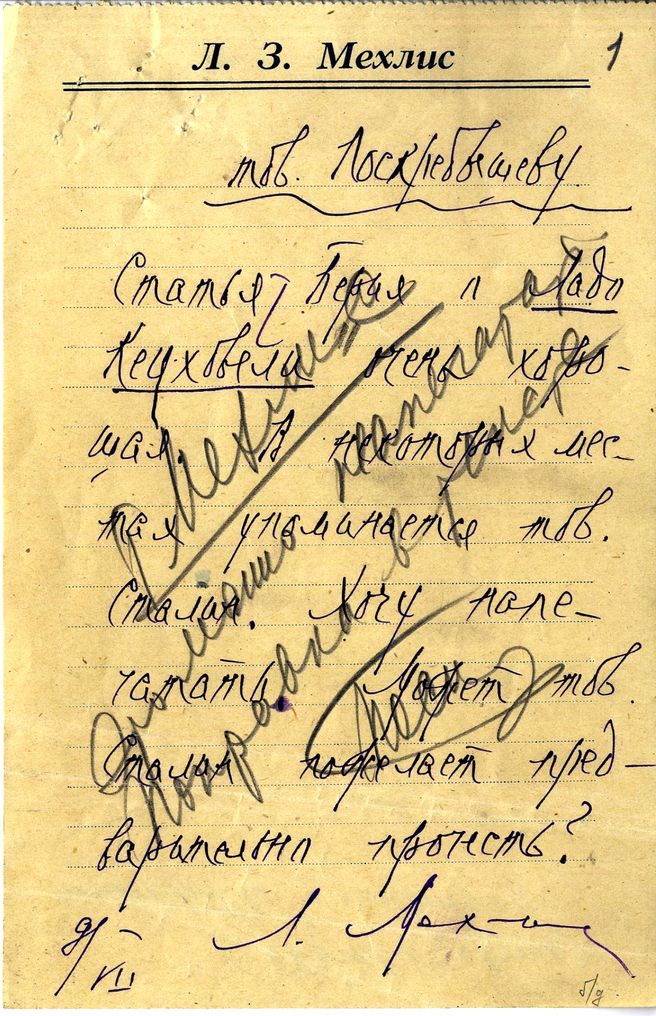 Л. З. Мехлис
1
тов. Поскребышеву
Статья Берия о Ладо
Кецховели очень хоро-
шая. В некоторых мес-
тах упоминается тов.
Сталин. Хочу напе-
чатать. Может тов.
Сталин пожелает пред-
варительно прочесть?
9/VII Л. Мехлис
Т. Мехлису
можно напечатать
Поправки в тексте
б/д